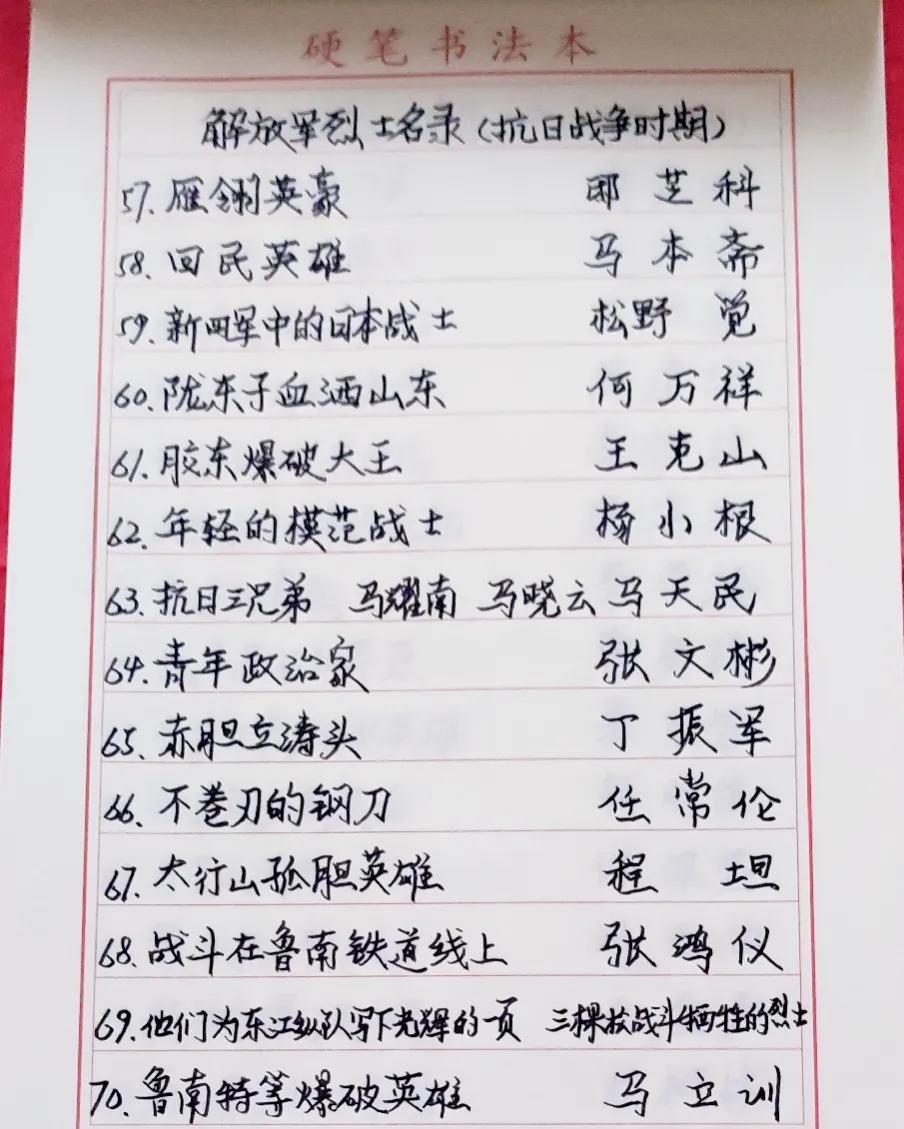 硬笔书法本
解放军烈士名录（抗日战争时期）
57. 雁翎英豪 邳芝科
58、回民英雄 马本斋
59、新四军中的日本战士 松野觉
60、陇东子血洒山东 何万祥
61、胶东爆破大王 王克山
62、年轻的模范战士 杨小根
63、抗日三兄弟 马耀南 马晓云 马天民
64、青年政治家 张文彬
65、赤胆立涛头 丁振军
66、不卷刃的钢刀 任常伦
67、太行山孤胆英雄 程坦
68、战斗在鲁南铁道线上 张鸿仪
69、他们为东江纵队写下光辉的一页 三棵松战斗牺牲的烈士
70、鲁南特等爆破英雄 马立训